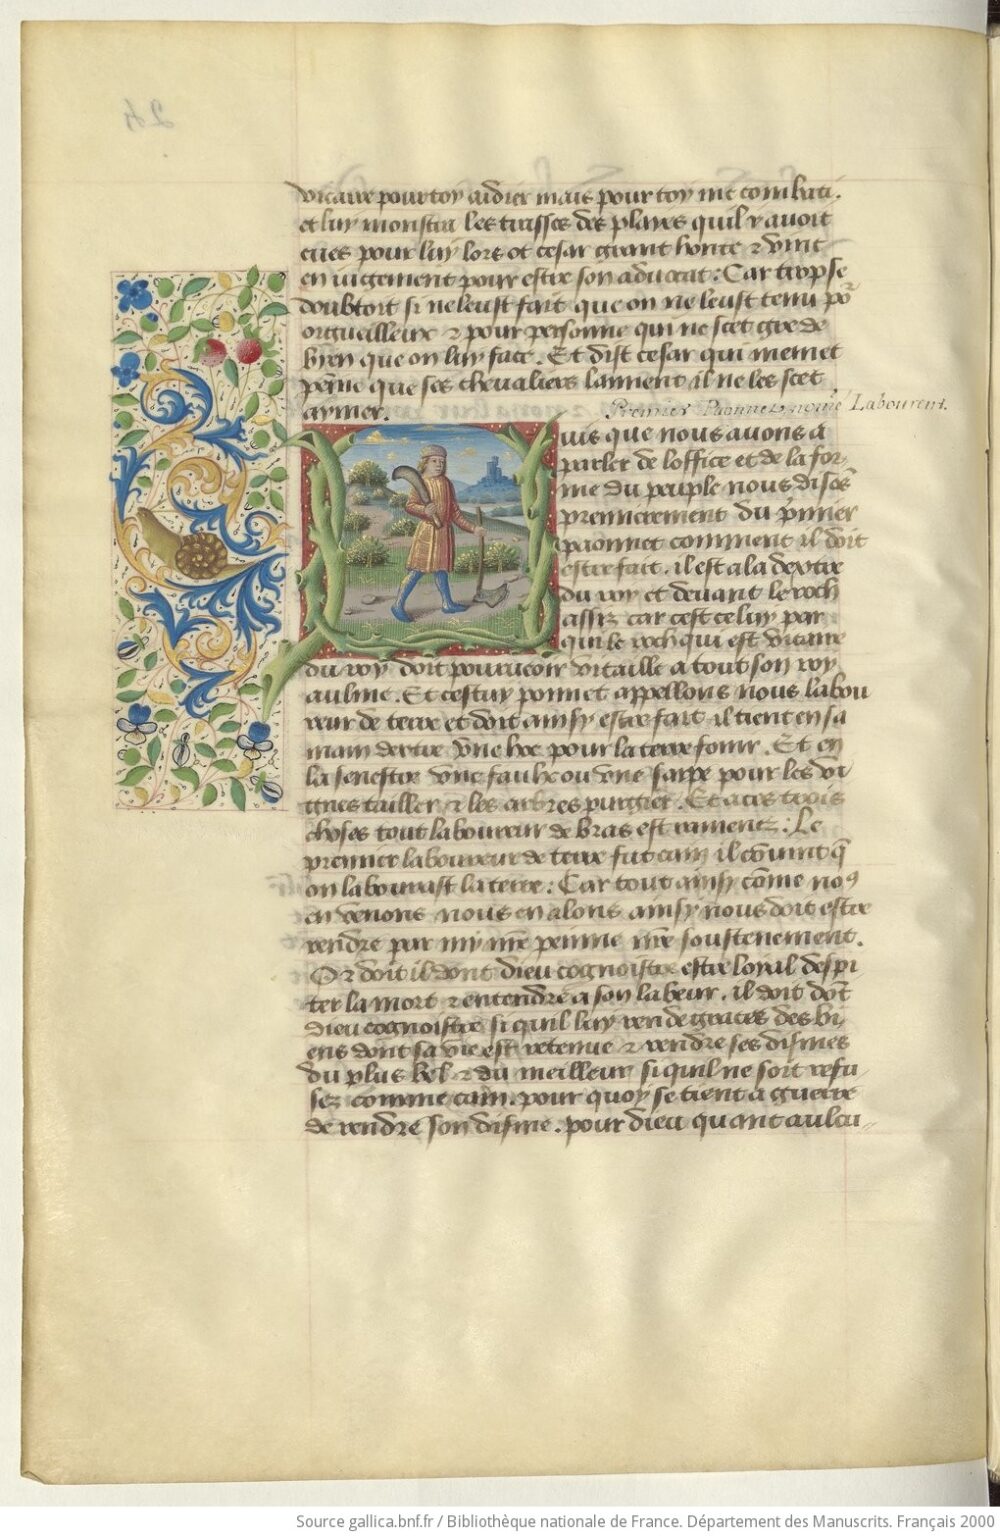 24
vicaire pour toy aidier mais pour toy me combati.
et luy monstra les trasses des playes quil y auoit
eues pour luy lors ot cesar grant honte ⁊ vint
en iugement pour estre son aduocat: Car trop se
doubtoit si ne leust fait que on ne leust tenu po͛
orgueilleux ⁊ pour personne qui ne scet gre de
bien que on luy face. Et dist cesar qui ne met
peine que ses cheualiers laiment il ne les scet
aymer.
Premier Paonnet nomé Labourent.
uis que nous auons a
parler de loffice et de la for
me du peuple nous disōs
premierement du p̄mier
paonnet comment il doit
estre fait. il est a la dextre
du roy et deuant le roch
assiz car cest celuy par
qui le roch qui est vicaire
du roy doit pourueoir vitaille a tout son roy
aulme. Et cestuy ponnet appellons nous labou
reur de terre et doit ainsy estre fait il tient en sa
main dextre vne hoe pour la terre fouir. Et en
la senestre vne faulx ou vne sarpe pour les vi
gnes tailler ⁊ les arbres purgier. Et a ces trois
choses tout laboureur de bras est ramene: Le
premier laboureur de terre fut cain il cōuint q̄
on labourast la terre: Car tout ainsy cōme noꝰ
en venons nous en alons ainsy nous doit elle
rendre par my nr̄e peinne nr̄e soustenement.
Or doit il dont dieu cognoistre estre loyal despi
ter la mort ⁊ entendre a son labeur. il doit dōt
dieu cognoistre si quil luy rende graces des bi
ens dont sa vie est retenue ⁊ rendre ses dismes
du plus bel ⁊ du meilleur si quil ne soit refu
sez comme cain. pour quoy se tient a guerre
de rendre son disme. pour dieu quant aulcu
Source gallica.bnf.fr / Bibliothèque nationale de France. Département des Manuscrits. Français 2000